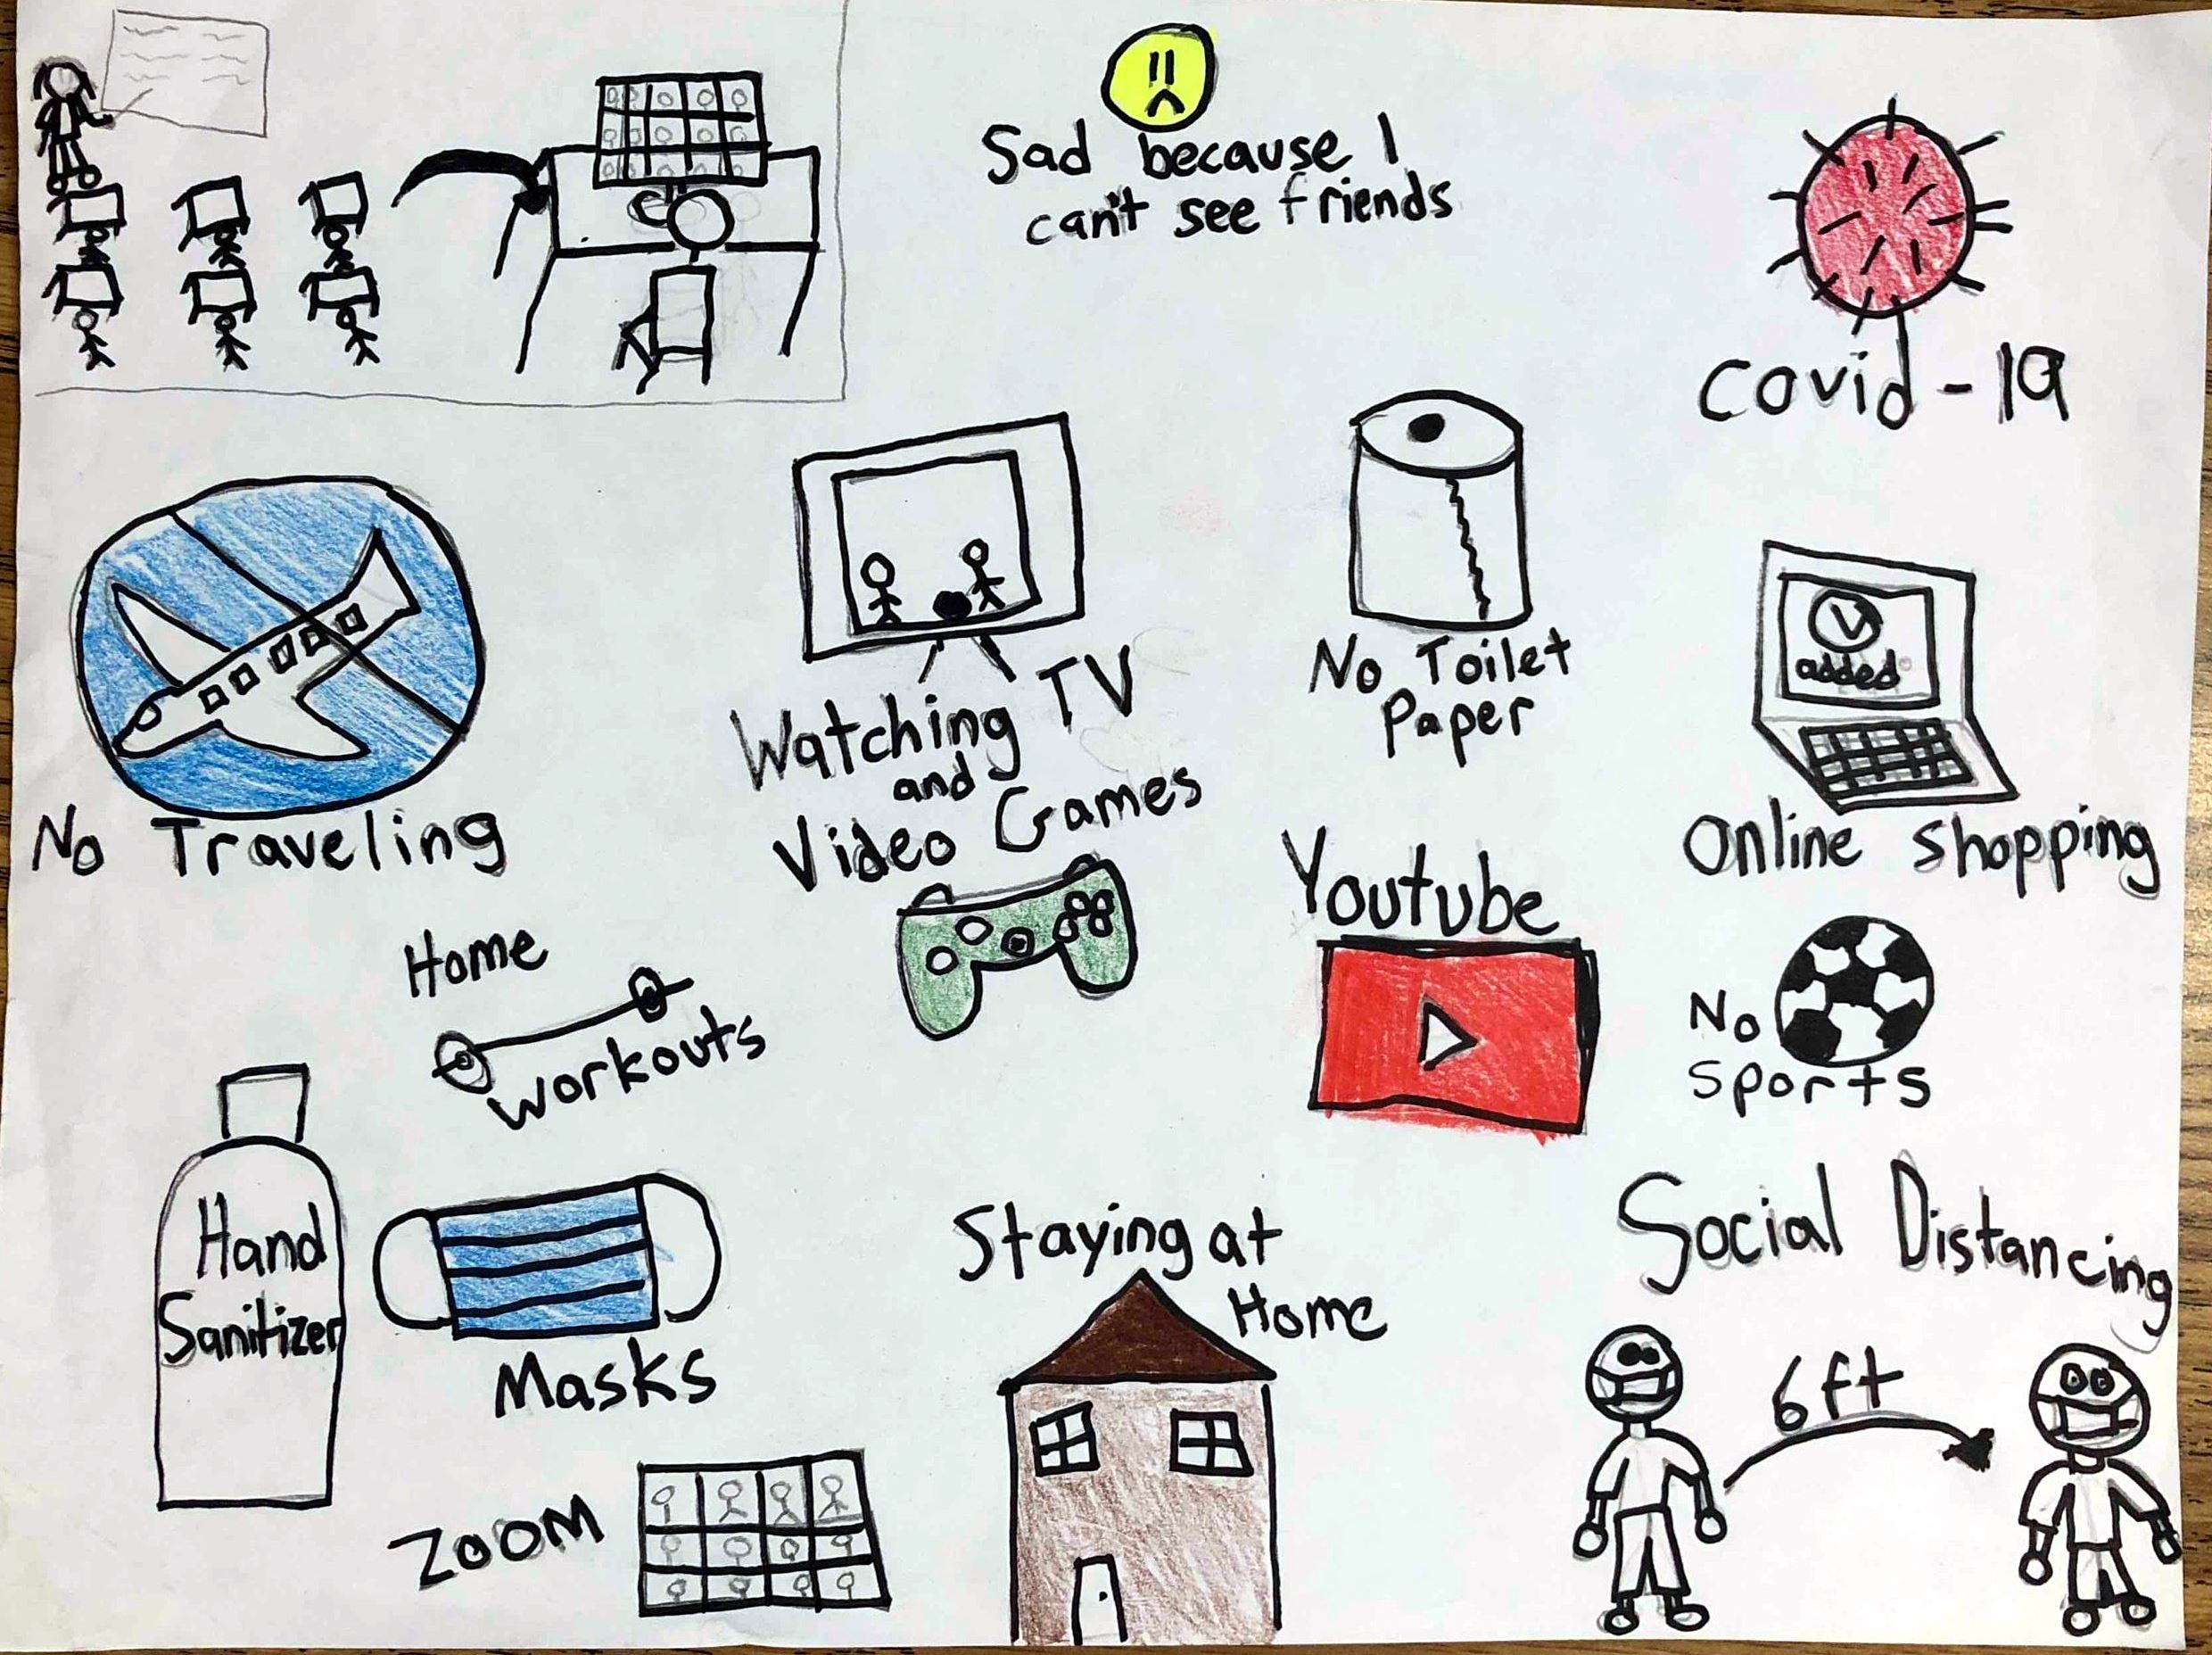 Sad because I
can't see friends
Covid-19
No Traveling
Watching TV
and
Video Games
No Toilet
Paper
added
Online shopping
Home
workouts
Youtube
No
Sports
Hand
Sanitizer
Masks
Staying at
Home
Social Distancing
6ft
ZOOM